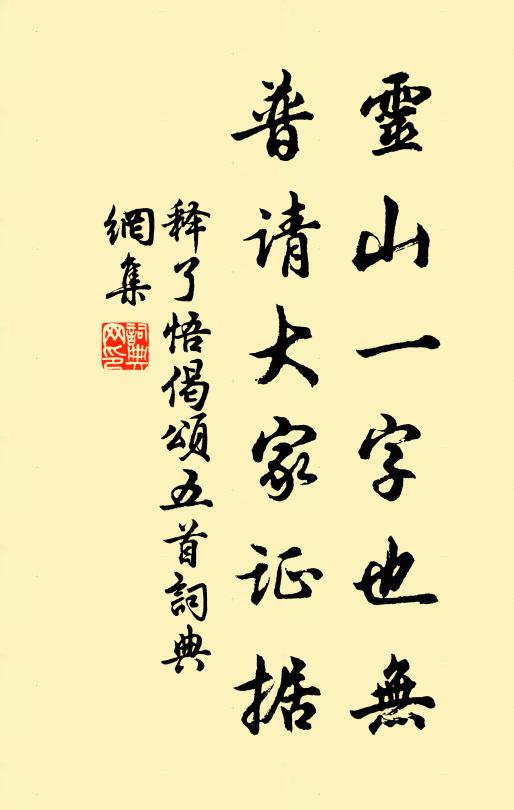 靈山一字也無
普请大家证据
释了悟偈頌五首詞典
網集
詞典
网印